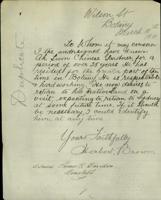 Wilson St
Botany
March
To Whom it may concern
I the undersigned have known
Ah Lum Chinese Gardener for a
period of over 25 years He has
resided for the greater part of the
time in Botany He is respectable
& hardworking He now wishes to
return to his native land on a
visit, expecting to return to Sydney
at some future time. If it should
be necessary I could identify
him at any time
Yours Faithfully
Brown
Duplicate